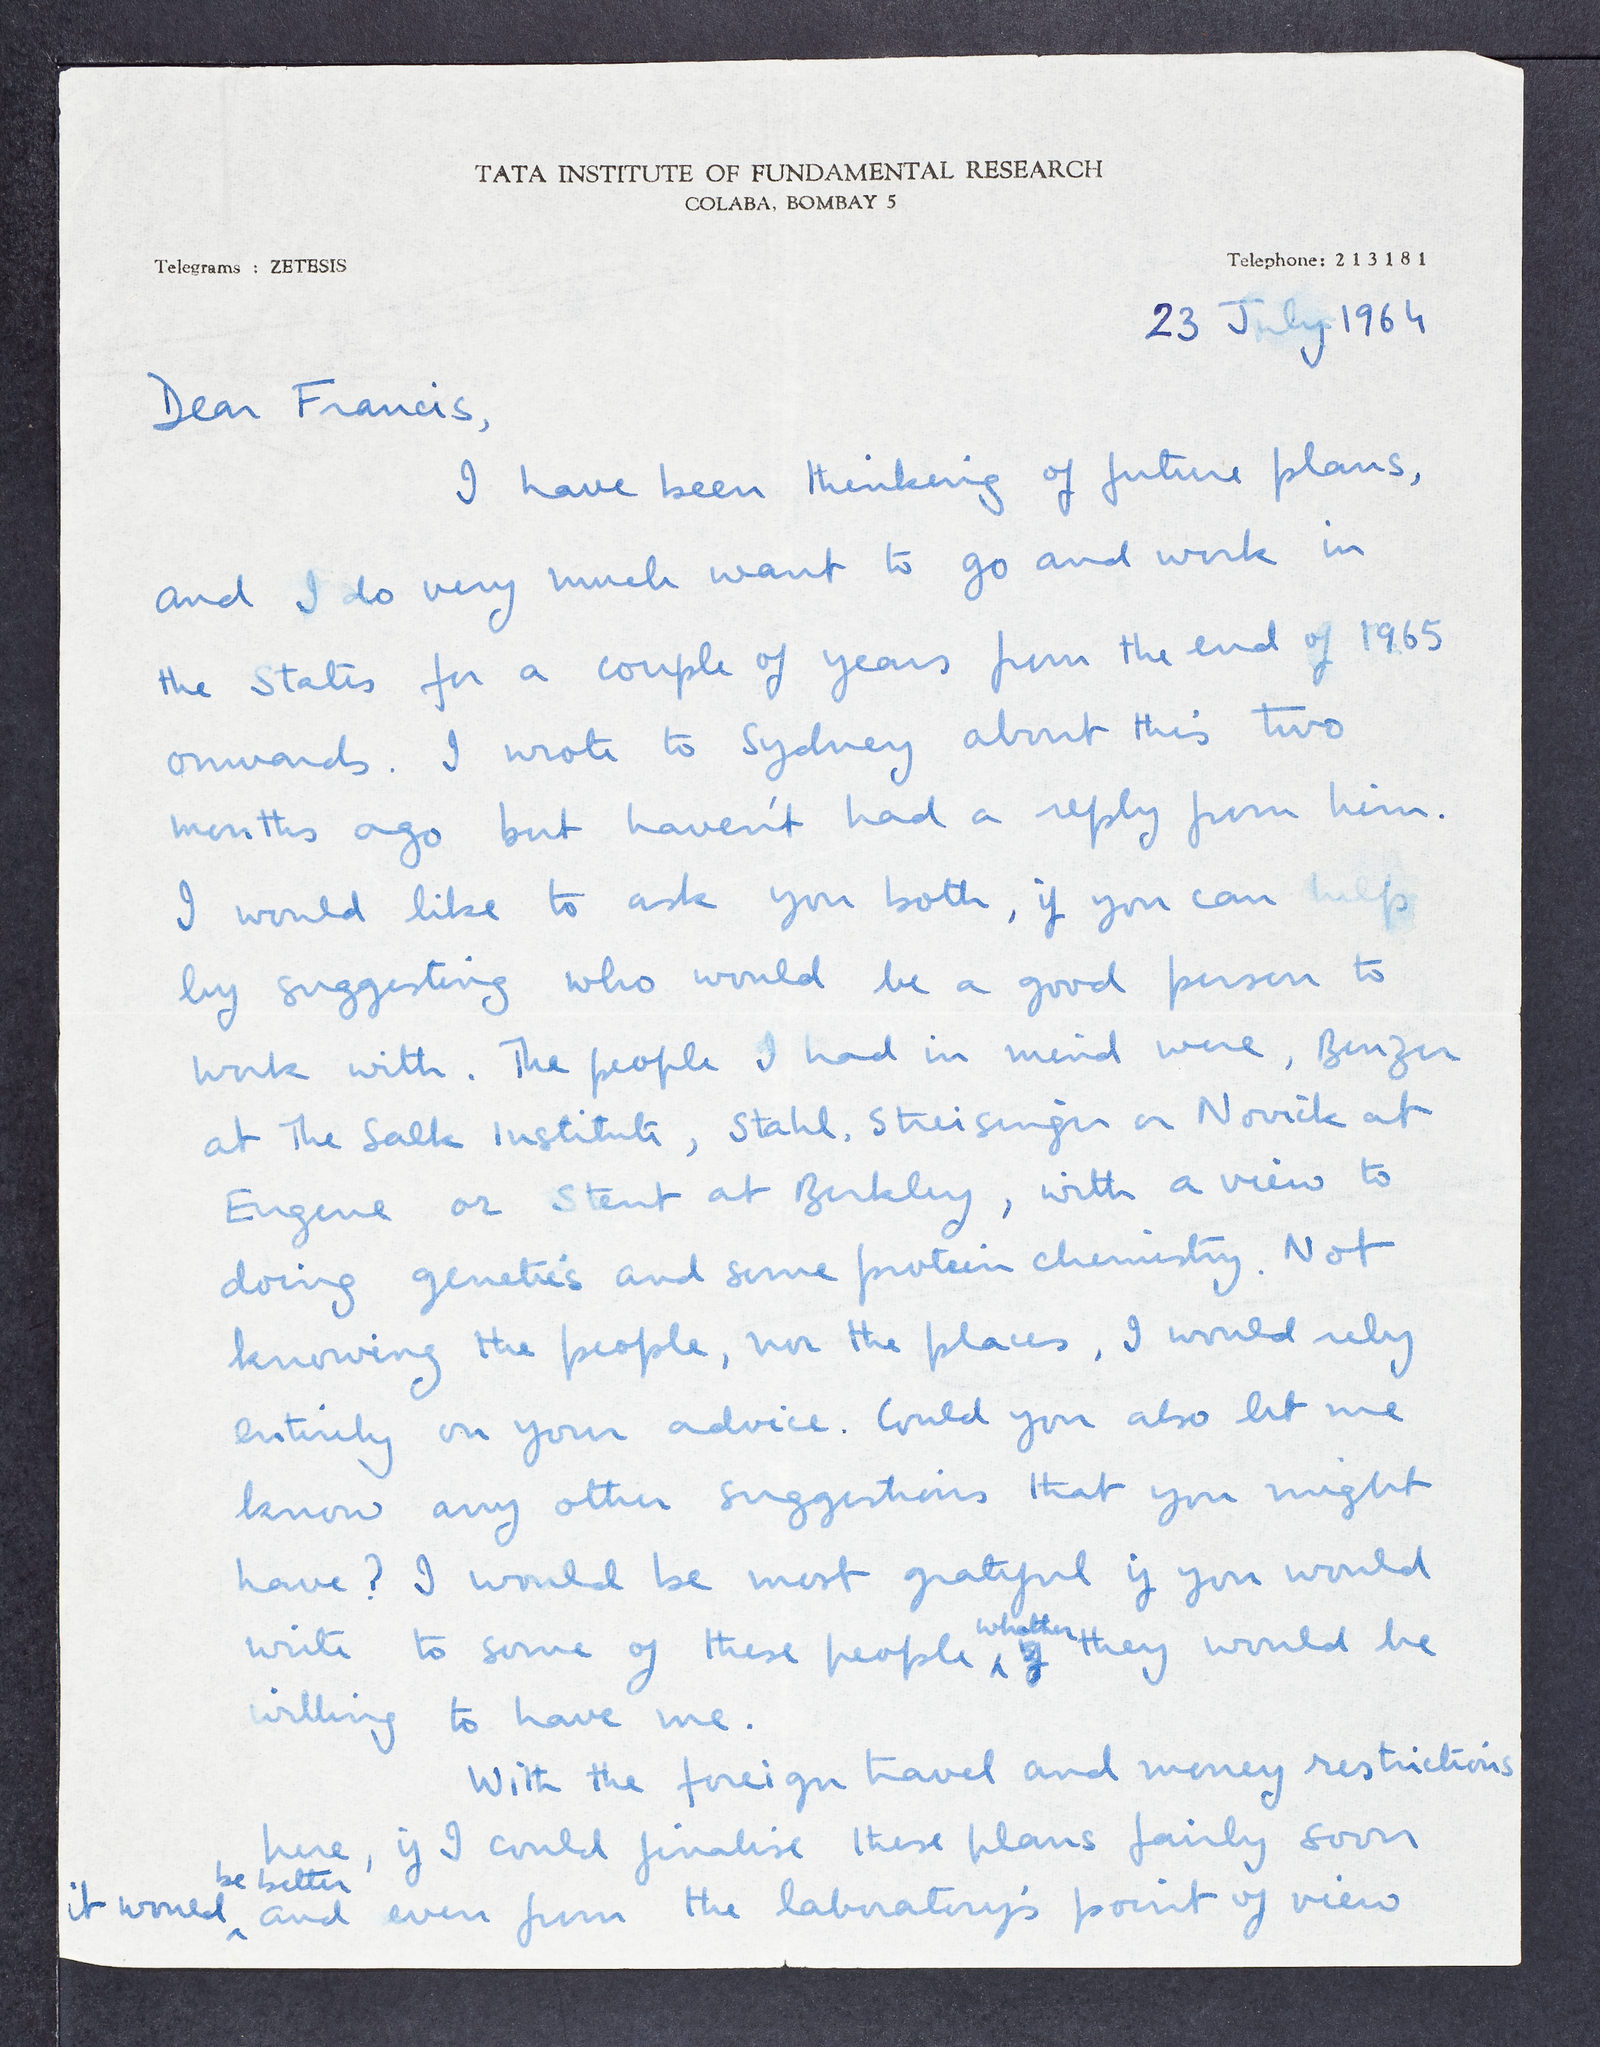 TATA INSTITUTE OF FUNDAMENTAL RESEARCH
COLABA, BOMBAY 5
Telegrams : ZETESIS
Telephone: 213181
23 July 1964
Dear Francis,
I have been thinking of future plans,
and I do very much want to go and work in
the States for a couple of years from the end of 1965
onwards. I wrote to Sydney about this two
months ago but haven't had a reply from him.
I would like to ask you both, if you can help
by suggesting who would be a good person to
work with. The people I had in mind were, Benzer
at The Salk Institute, Stahl, Streisinger or Novick at
Eugene or Stent at Berkley, with a view to
doing genetics and some protein chemistry. Not
knowing the people, nor the places, I would rely
entirely on your advice. Could you also let me
know any other suggestions that you might
have? I would be most grateful if you would
write to some of these people, whether they would be
willing to have me.
With the foreign travel and money restrictions
here, if I could finalise these plans fairly soon
it would be better and even from the laboratory's point of view